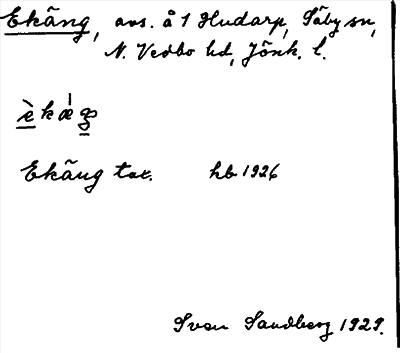 Ekäng, avs. å 1 Hudarp, Säby sn,
N. Vedbo hd, Jönk. l.
Ekäng tax. hb 1926
Sven Sandberg 1929.